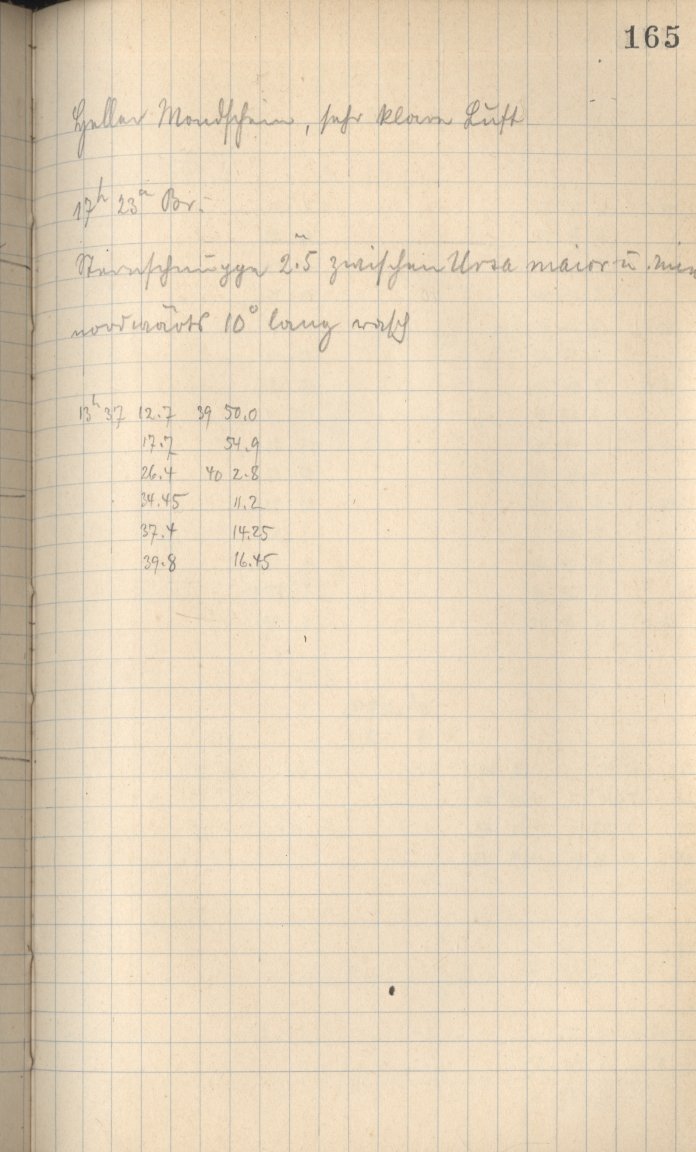 165
Heller Mondschein, sehr klare Luft
17h 23m Br.
Sternschnuppe 2m.5 zwischen Ursa maior u. min
nordwärts 10° lang rasch
13h 37 12.7 39 50.0
17.7 54.9
26.4 40 2.8
34.45 11.2
37.4 14.25
39.8 16.45